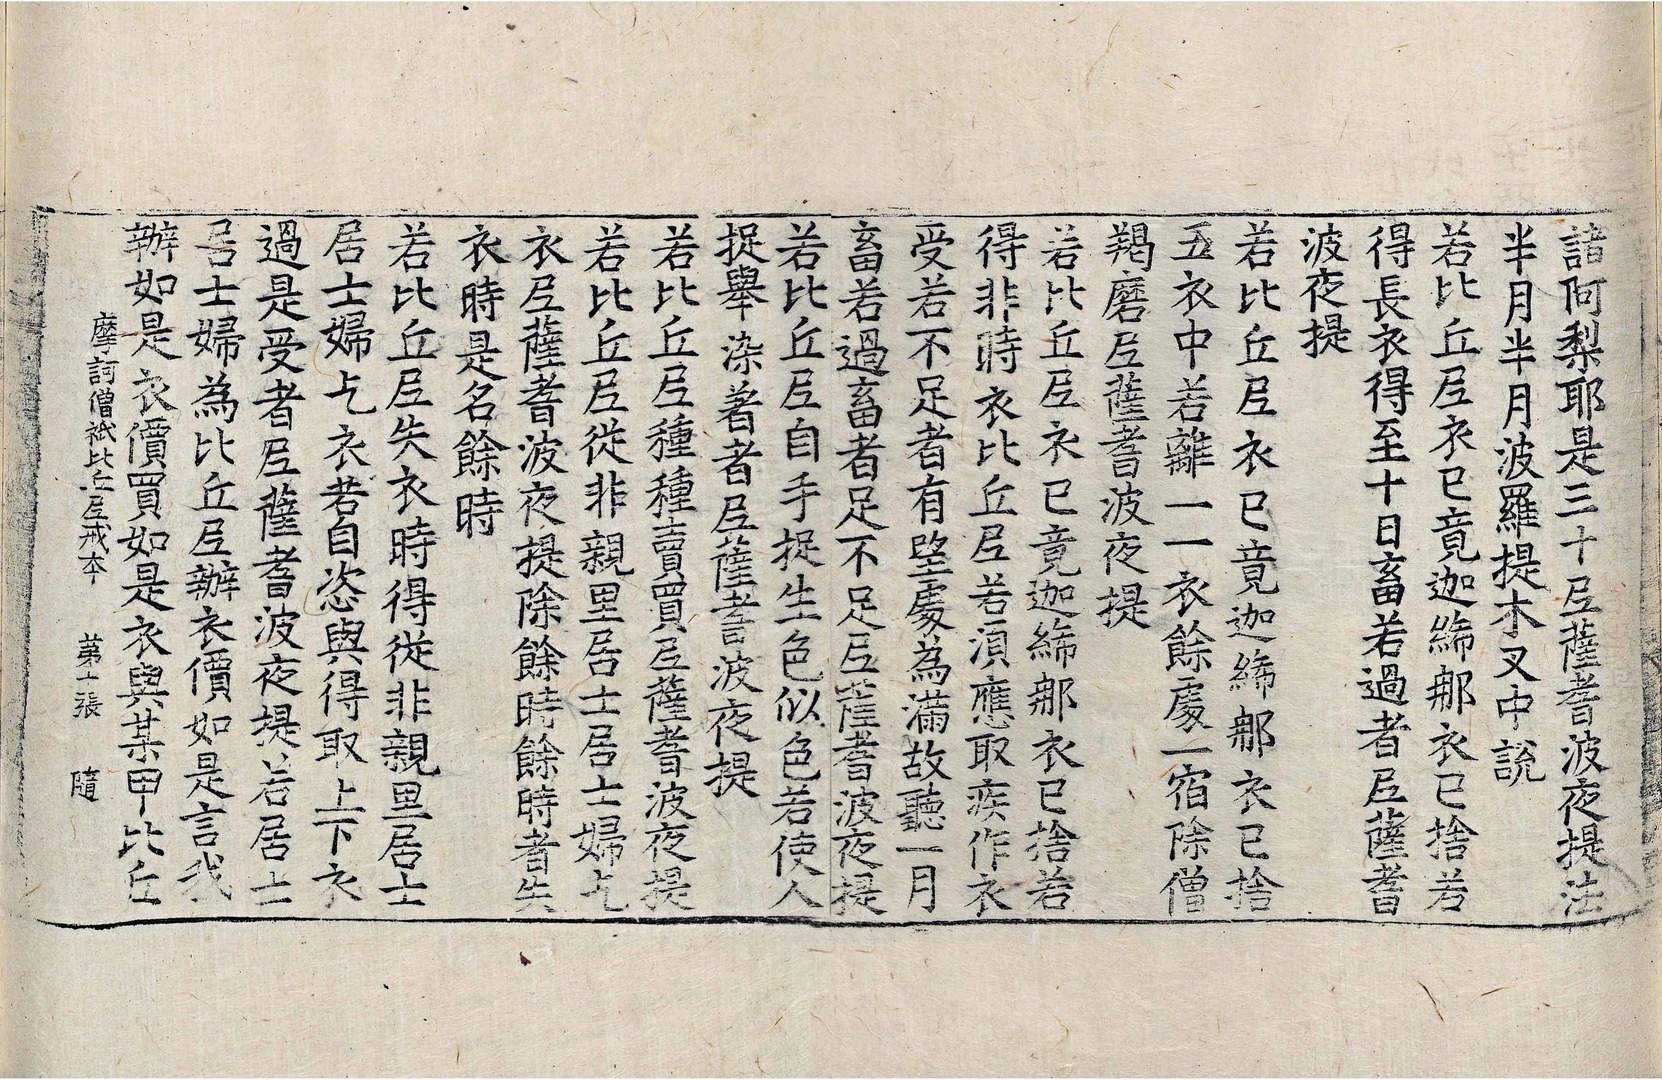 諸阿梨耶是三十尼薩耆波夜提法
半月半月波羅提木叉中說
若比丘尼衣已竟迦絺那衣已捨若
得長衣得至十日畜若過者尼薩耆
波夜提
若比丘尼衣已竟迦絺那衣已捨
五衣中若離一一衣餘處一宿除僧
羯磨尼薩耆波夜提
若比丘尼衣已竟迦絺那衣已捨若
得非時衣比丘尼若須應取疾作衣
受若不足者有望處為滿故聽一月
畜若過畜者足不足尼薩耆波夜提
若比丘尼自手捉生色似色若使人
捉舉染著者尼薩耆波夜提
若比丘尼種種賣買尼薩耆波夜提
若比丘尼從非親里居士居士婦乞
衣尼薩耆波夜提除餘時餘時者失
衣時是名餘時
若比丘尼失衣時得從非親里居士
居士婦乞衣若自恣與得取上下衣
過是受者尼薩耆波夜提若居士
居士婦為比丘尼辦衣價如是言我
辦如是衣價買如是衣與某甲比丘
摩訶僧祇比丘尼戒本 第十張 隨